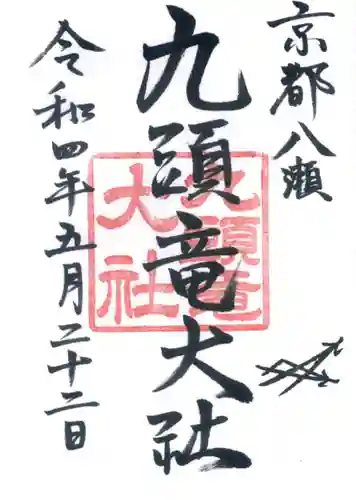 京都八瀬
九頭竜大社
九頭竜
大社
令和四年五月二十二日